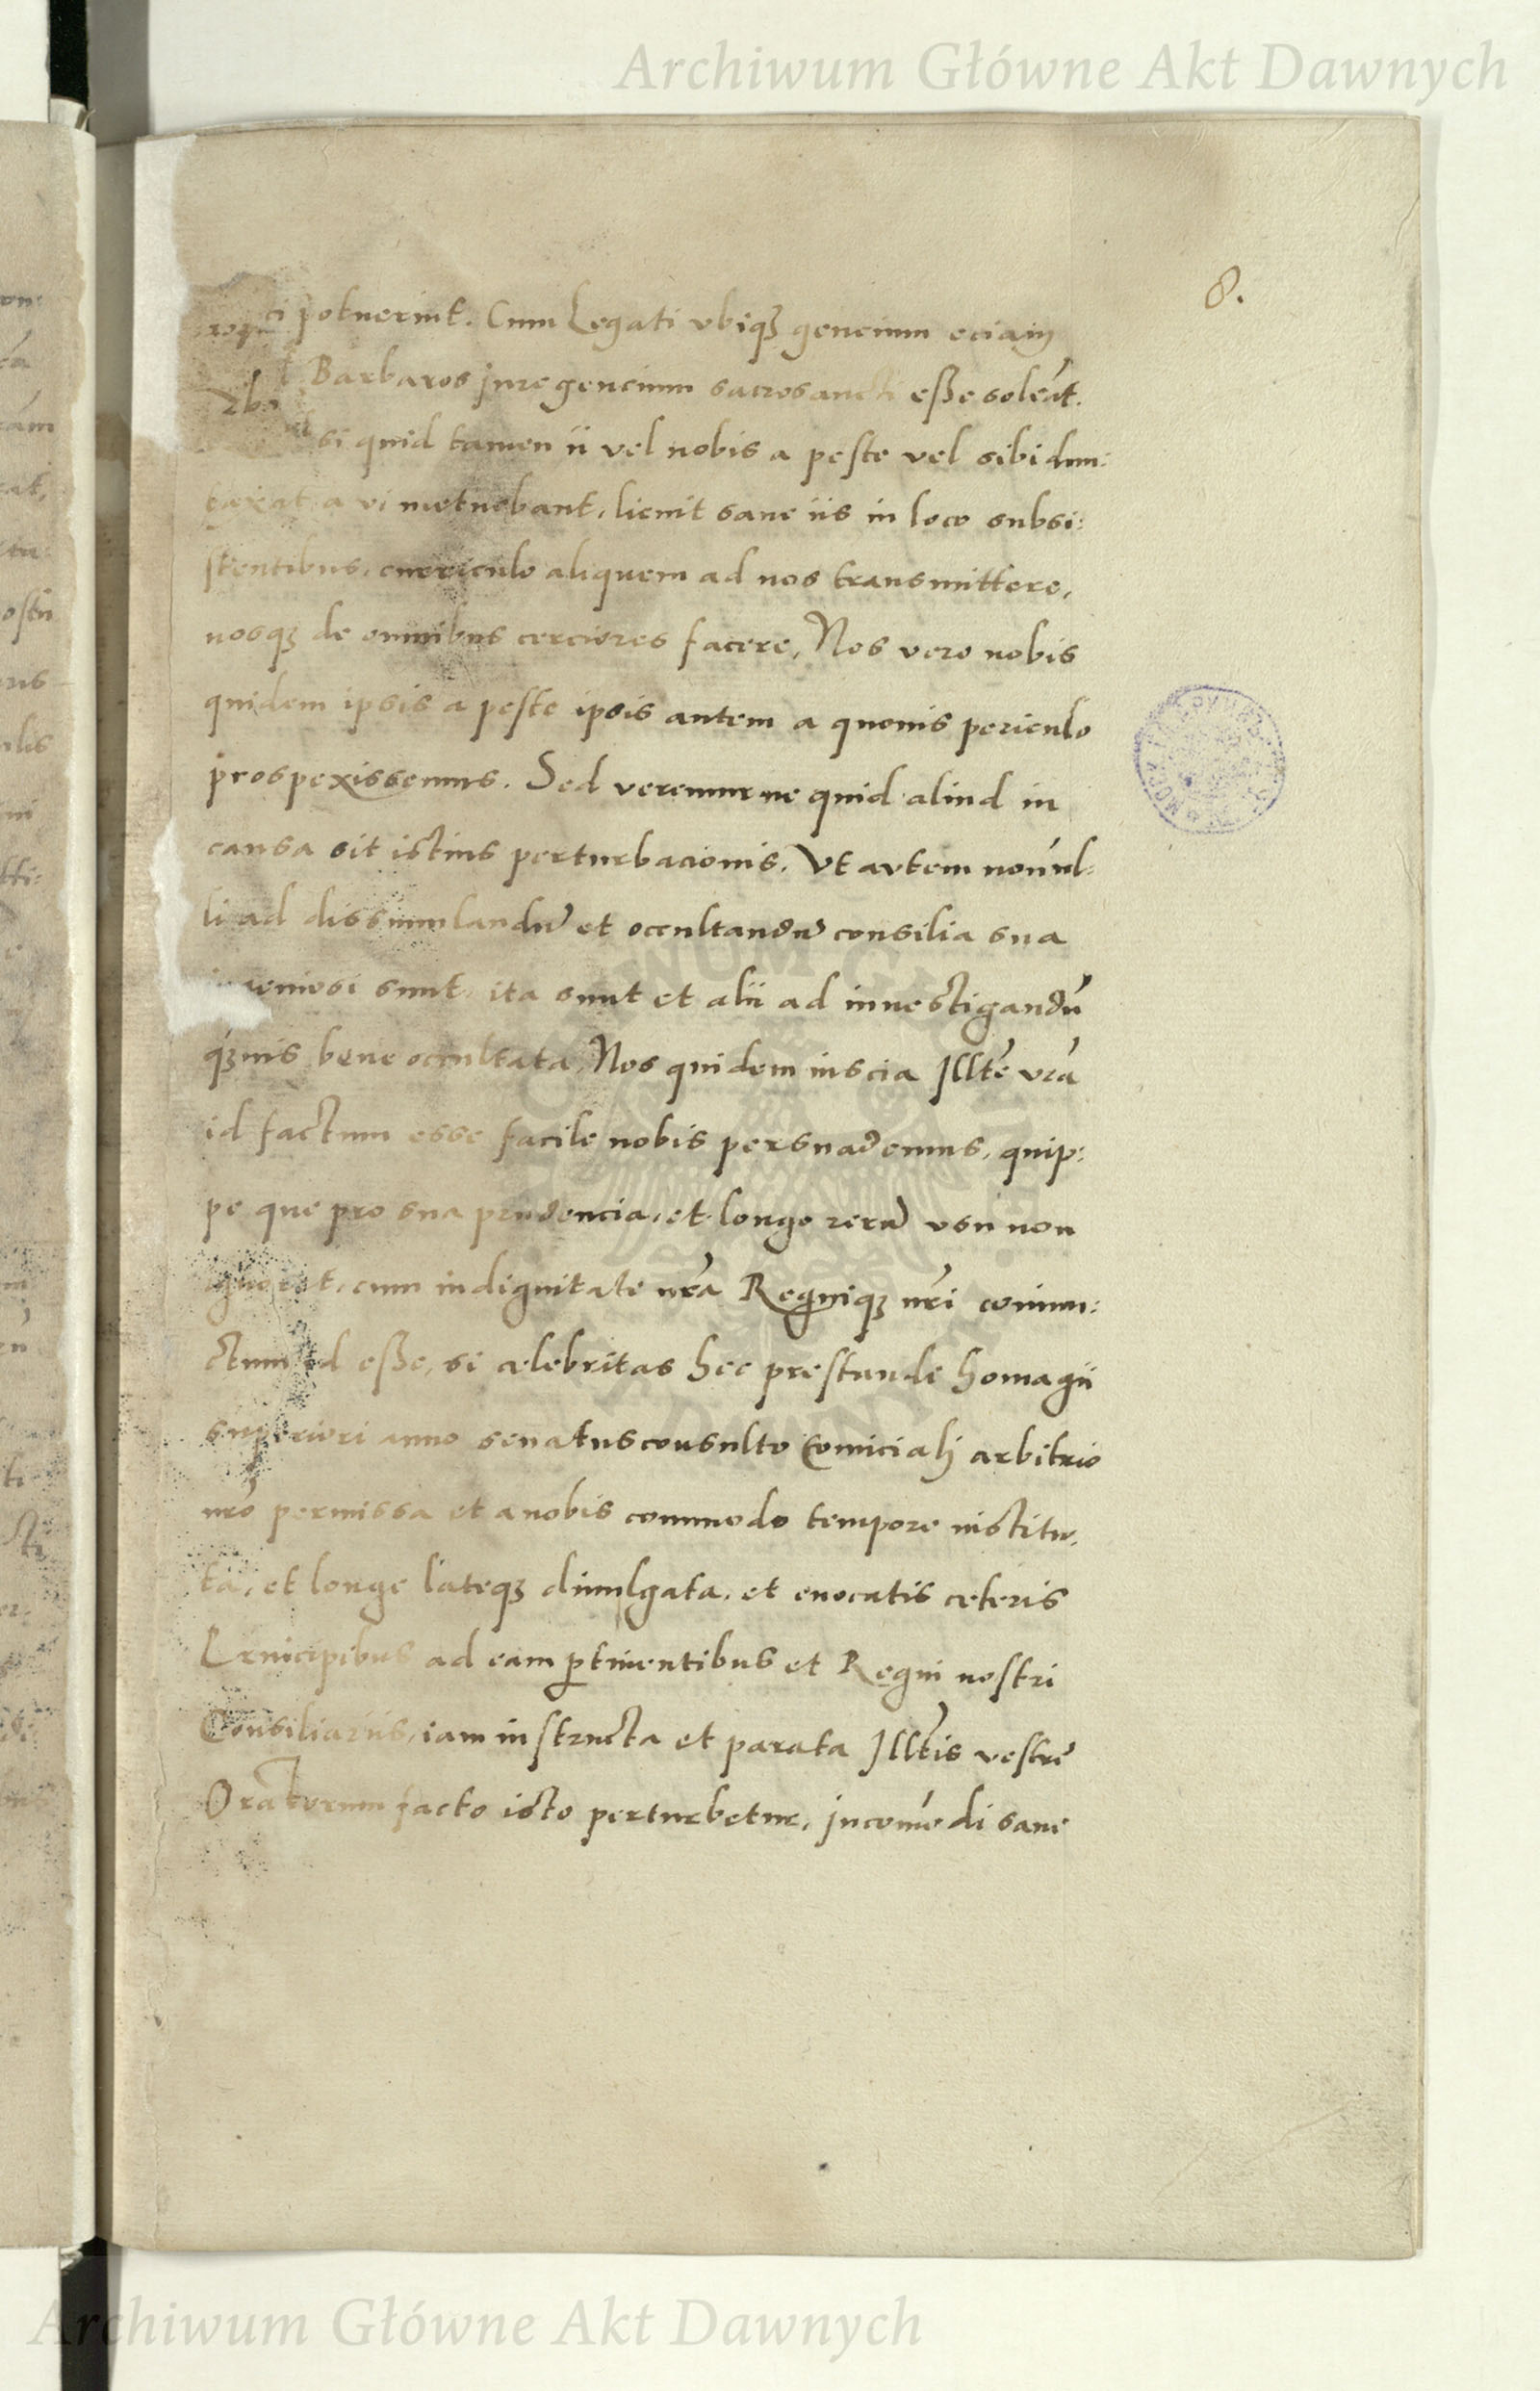 Archiwum Główne Akt Dawnych
8.
ci potuerint. Cum Legati vbiqȝ gencium eciam
Barbaros jure gencium sacrosancti esse soleāt.
si quid tamen ii vel nobis a peste vel sibi dum:
taxat a vi metuebant, licuit sane iis in loco subsi:
stentibus, curriculo aliquem ad nos transmittere,
nosqȝ de omnibus cerciores facere, Nos vero nobis
quidem ipsis a peste ipsis autem a quouis periculo
prospexissemus. Sed veremur ne quid aliud in
causa sit istius perturbacionis. Vt avtem nōnul:
li ad dissimulandū et occultandū consilia sua
ingeniosi sunt, ita sunt et alii ad inuestigandū
qȝuis bene occultata, Nos quidem inscia Illtē vrā
id factum esse facile nobis persuademus, quip:
pe que pro sua prudencia, et longo rerū vsu non
ignorat, cum indignitate nrā Regniqȝ nri coniun:
ctum id esse, si celebritas hec prestande homagii
superiori anno senatusconsulto Comiciali arbitrio
nrō permissa et a nobis commodo tempore institu:
ta, et longe lateqȝ diuulgata, et euocatis ceteris
Principibus ad eam ptinentibus et Regni nostri
Consiliariis, iam instructa et parata Illtis vestrē
Oratorum facto isto perturbetur, jncōmodi sane
Archiwum Główne Akt Dawnych